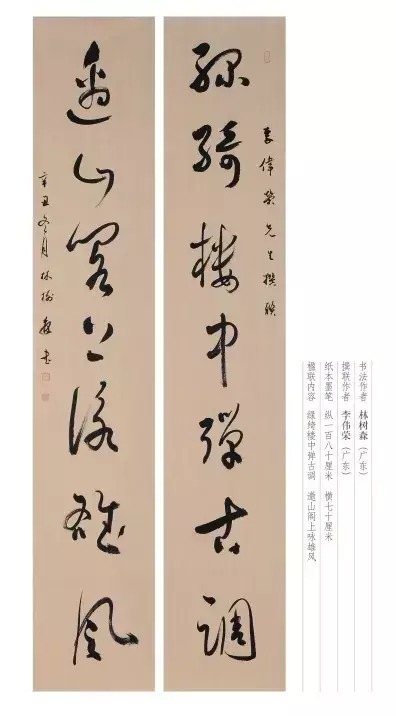 书法作者 林树森（广东）
撰联作者 李伟荣（广东）
纸本墨笔 纵一百八十厘米 横七十厘米
楹联内容 绿绮楼中弹古调 邀山阁上咏雄风
李偉榮先生撰聯
綠綺樓中彈古調
邀山閣上詠雄風
辛丑冬月林樹森書